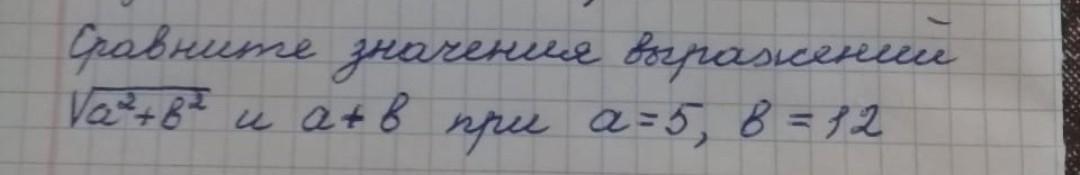 Сравните значения выражений
√a²+b² и a+b при a=5, b=12